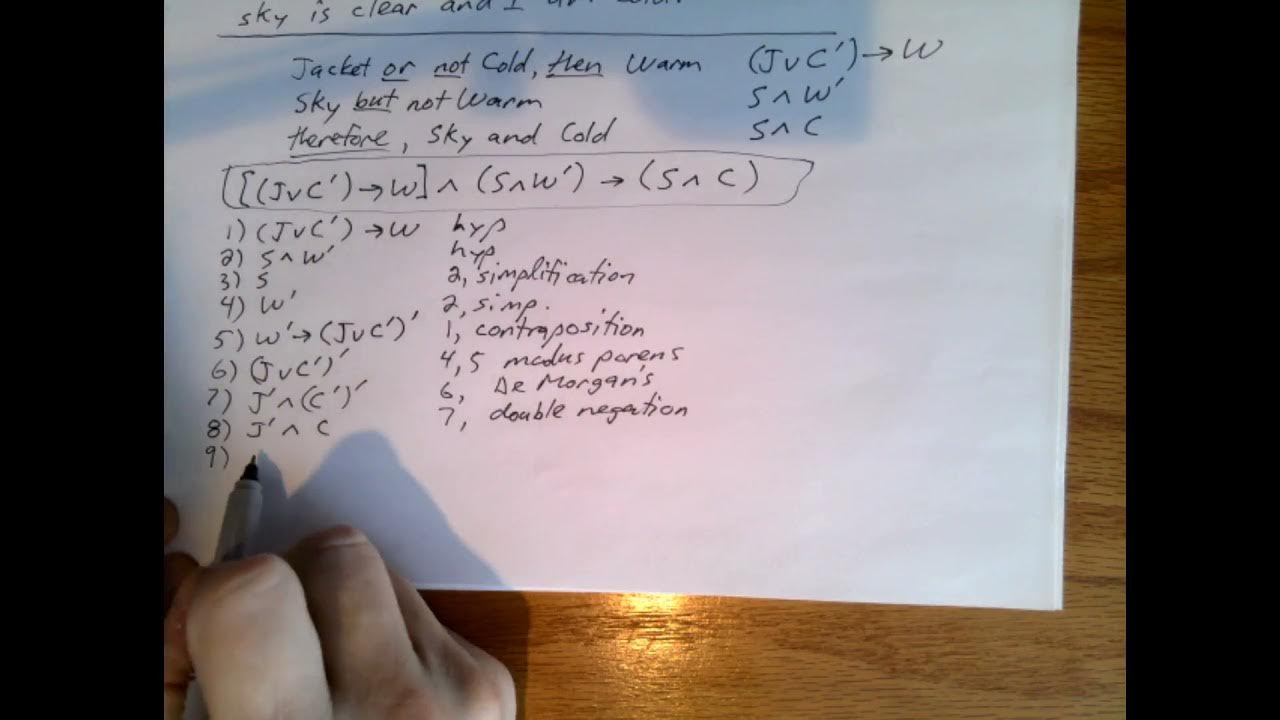 sky is clear and I am cold.
Jacket or not Cold, then Warm (J∨C')→W
Sky but not Warm S∧W'
therefore, Sky and Cold S∧C
[[(J∨C')→W]∧(S∧W')→(S∧C)
1) (J∨C')→W hyp
2) S∧W' hyp
3) S 2, simplification
4) W' 2, simp.
5) W'→(J∨C')' 1, contraposition
6) (J∨C')' 4,5 modus ponens
7) J'∧(C')' 6, De Morgan's
8) J'∧C 7, double negation
9)